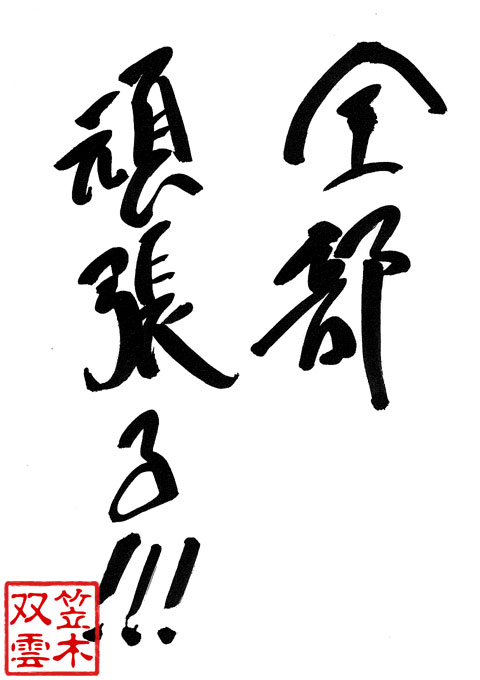 全部
頑張る!!!
笠木
双雲